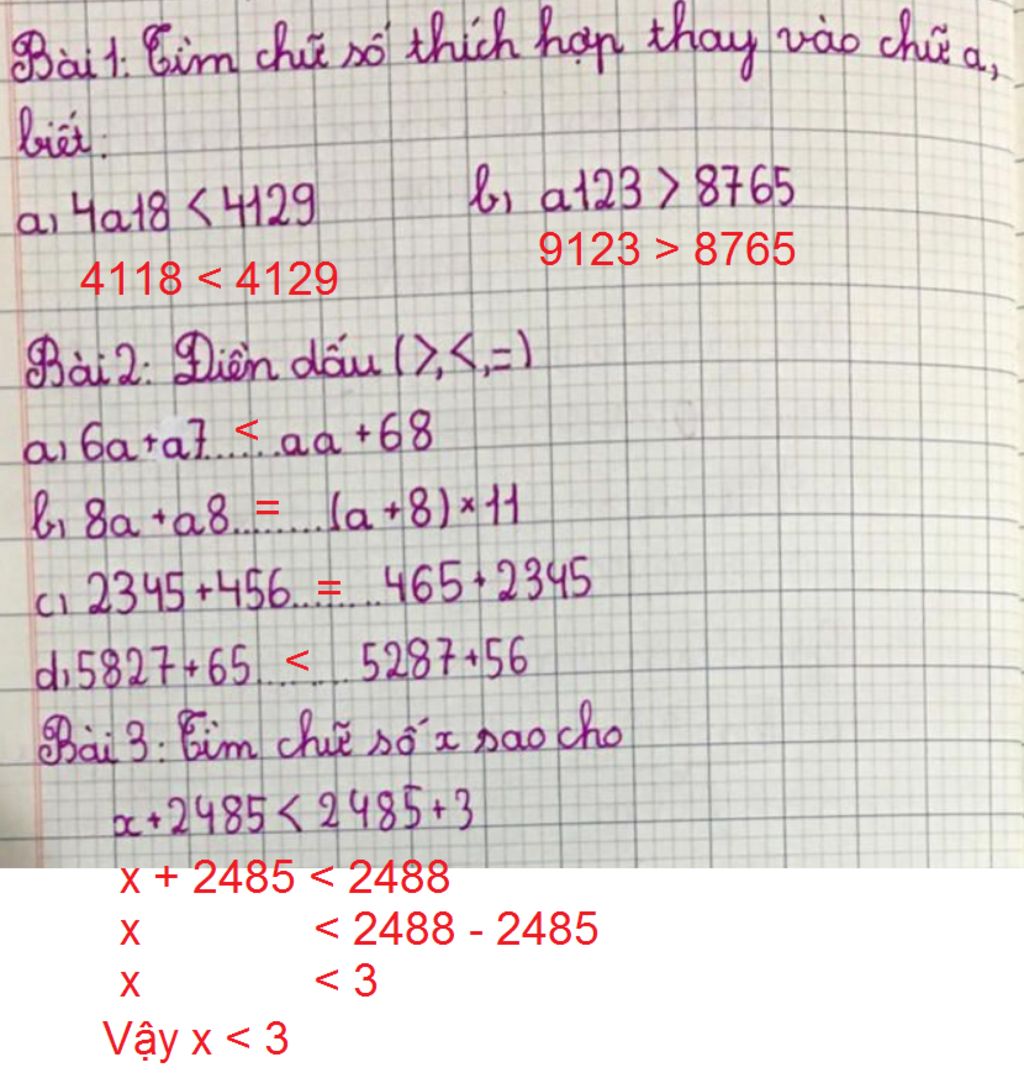 Bài 1: Tìm chữ số thích hợp thay vào chữ a,
biết:
a, 4a18 < 4129 b, a123 > 8765
4118 < 4129 9123 > 8765
Bài 2: Điền dấu (>, <, =)
a, 6a + a7...<...aa + 68
b, 8a + a8...=...(a + 8) × 11
c, 2345 + 456...=...465 + 2345
d, 5827 + 65...<...5287 + 56
Bài 3: Tìm chữ số x sao cho
x + 2485 < 2485 + 3
x + 2485 < 2488
x < 2488 - 2485
x < 3
Vậy x < 3